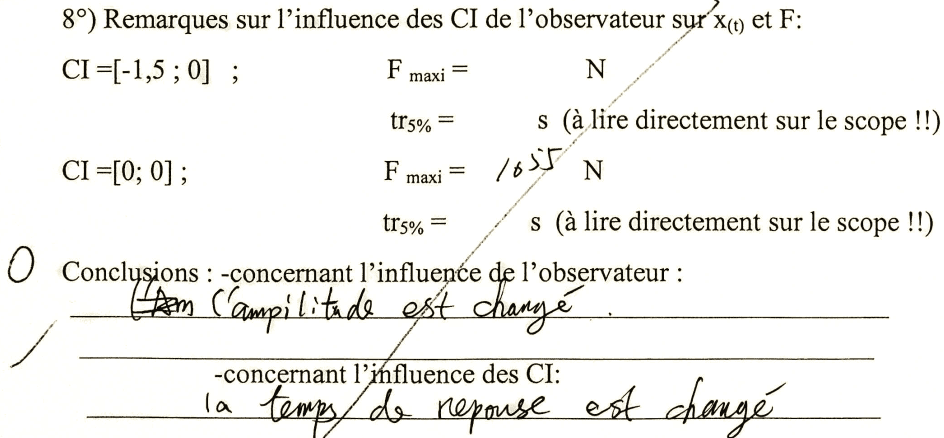 8°) Remarques sur l’influence des CI de l’observateur sur x(t) et F:
CI =[-1,5 ; 0] ; F maxi = N
tr5% = s (à lire directement sur le scope !!)
CI =[0; 0] ; F maxi = 1055 N
tr5% = s (à lire directement sur le scope !!)
0 Conclusions : -concernant l’influence de l’observateur :
l'ampilitude est changé .
-concernant l’influence des CI:
la temps de reponse est changé